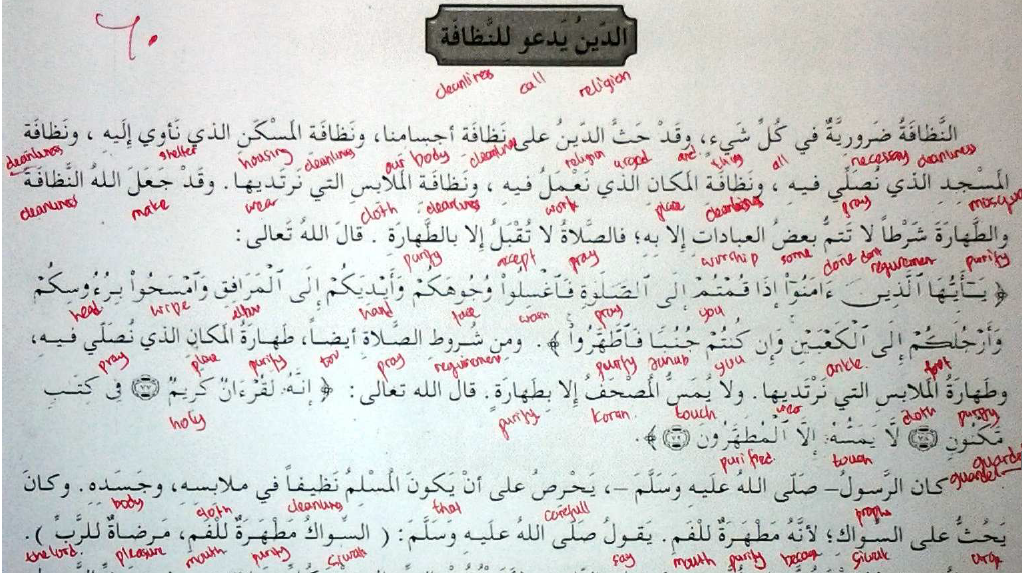 الدّينُ يَدعو للنَّظافَة
cleanlines call religion
النَّظافَةُ ضَروريَّةٌ في كُلِّ شيءٍ، وقَدْ حَثَّ الدّينُ على نَظافَة أجسامنا، ونَظافَة المَسْكَن الذي نَأوي إليه ، ونَظافَة
cleanliness shelter housing cleanlines our body cleanlines religion urged are thing all necessary cleanliness
المَسْجِد الذي نُصَلّي فيه ، ونَظافَة المَكان الذي نَعْمَلُ فيه ، ونَظافَة المَلابس التي نَرتَديها. وقَدْ جَعَلَ اللهُ النَّظافَةَ
cleanlines make wear cloth cleanlines work place cleanlines pray mosque
والطَّهارَةَ شَرْطاً لا تَتمُّ بعضُ العبادات إلا به؛ فالصَّلاةُ لا تُقبَلُ إلا بالطَّهارَة . قالَ اللهُ تَعالى :
purify accept pray worship some done dont requiremen purify
﴿ يَـٰٓأَيُّهَا ٱلَّذِينَ ءَامَنُوٓا۟ إِذَا قُمْتُمْ إِلَى ٱلصَّلَوٰةِ فَٱغْسِلُوا۟ وُجُوهَكُمْ وَأَيْدِيَكُمْ إِلَى ٱلْمَرَافِقِ وَٱمْسَحُوا۟ بِرُءُوسِكُمْ
head wipe elbow hand face wash pray you
وَأَرْجُلَكُمْ إِلَى ٱلْكَعْبَيْنِ وَإِن كُنتُمْ جُنُبًا فَٱطَّهَّرُوا۟ ﴾. ومن شُروط الصَّلاة أيضاً، طَهارَةُ المَكان الذي نُصَلّي فيه،
pray place purify too pray requiremen purify Junub you ankle foot
وطَهارَةُ المَلابس التي نَرتَديها. ولا يُمَسُّ المُصْحَفُ إلا بِطَهارَة. قال الله تعالى: ﴿ إِنَّهُۥ لَقُرْءَانٌ كَرِيمٌ ﴿٧٧﴾ فِى كِتَـٰبٍ
holy purify koran touch wear cloth purify
مَّكْنُونٍ ﴿٧٨﴾ لَّا يَمَسُّهُۥٓ إِلَّا ٱلْمُطَهَّرُونَ ﴿٧٩﴾ ﴾.
purified touch guarded guarded
كان الرَّسولُ– صَلّى اللهُ عَلَيه وَسَلَّمَ –، يَحْرِص على أنْ يَكونَ المُسْلمُ نَظيفاً في ملابسه، وجَسَده. وكانَ
body cloth cleanlines that carefull prophe
يَحُثُّ على السِّواك؛ لأنَّهُ مَطْهَرَةٌ للْفَم. يَقولُ صَلّى اللهُ عليه وَسَلَّمَ: ( السِّواكُ مَطْهَرَةٌ للْفَم، مَرضاةٌ للرَّبِّ ).
the lord pleasure mouth purify siwak say mouth purify because siwak urge